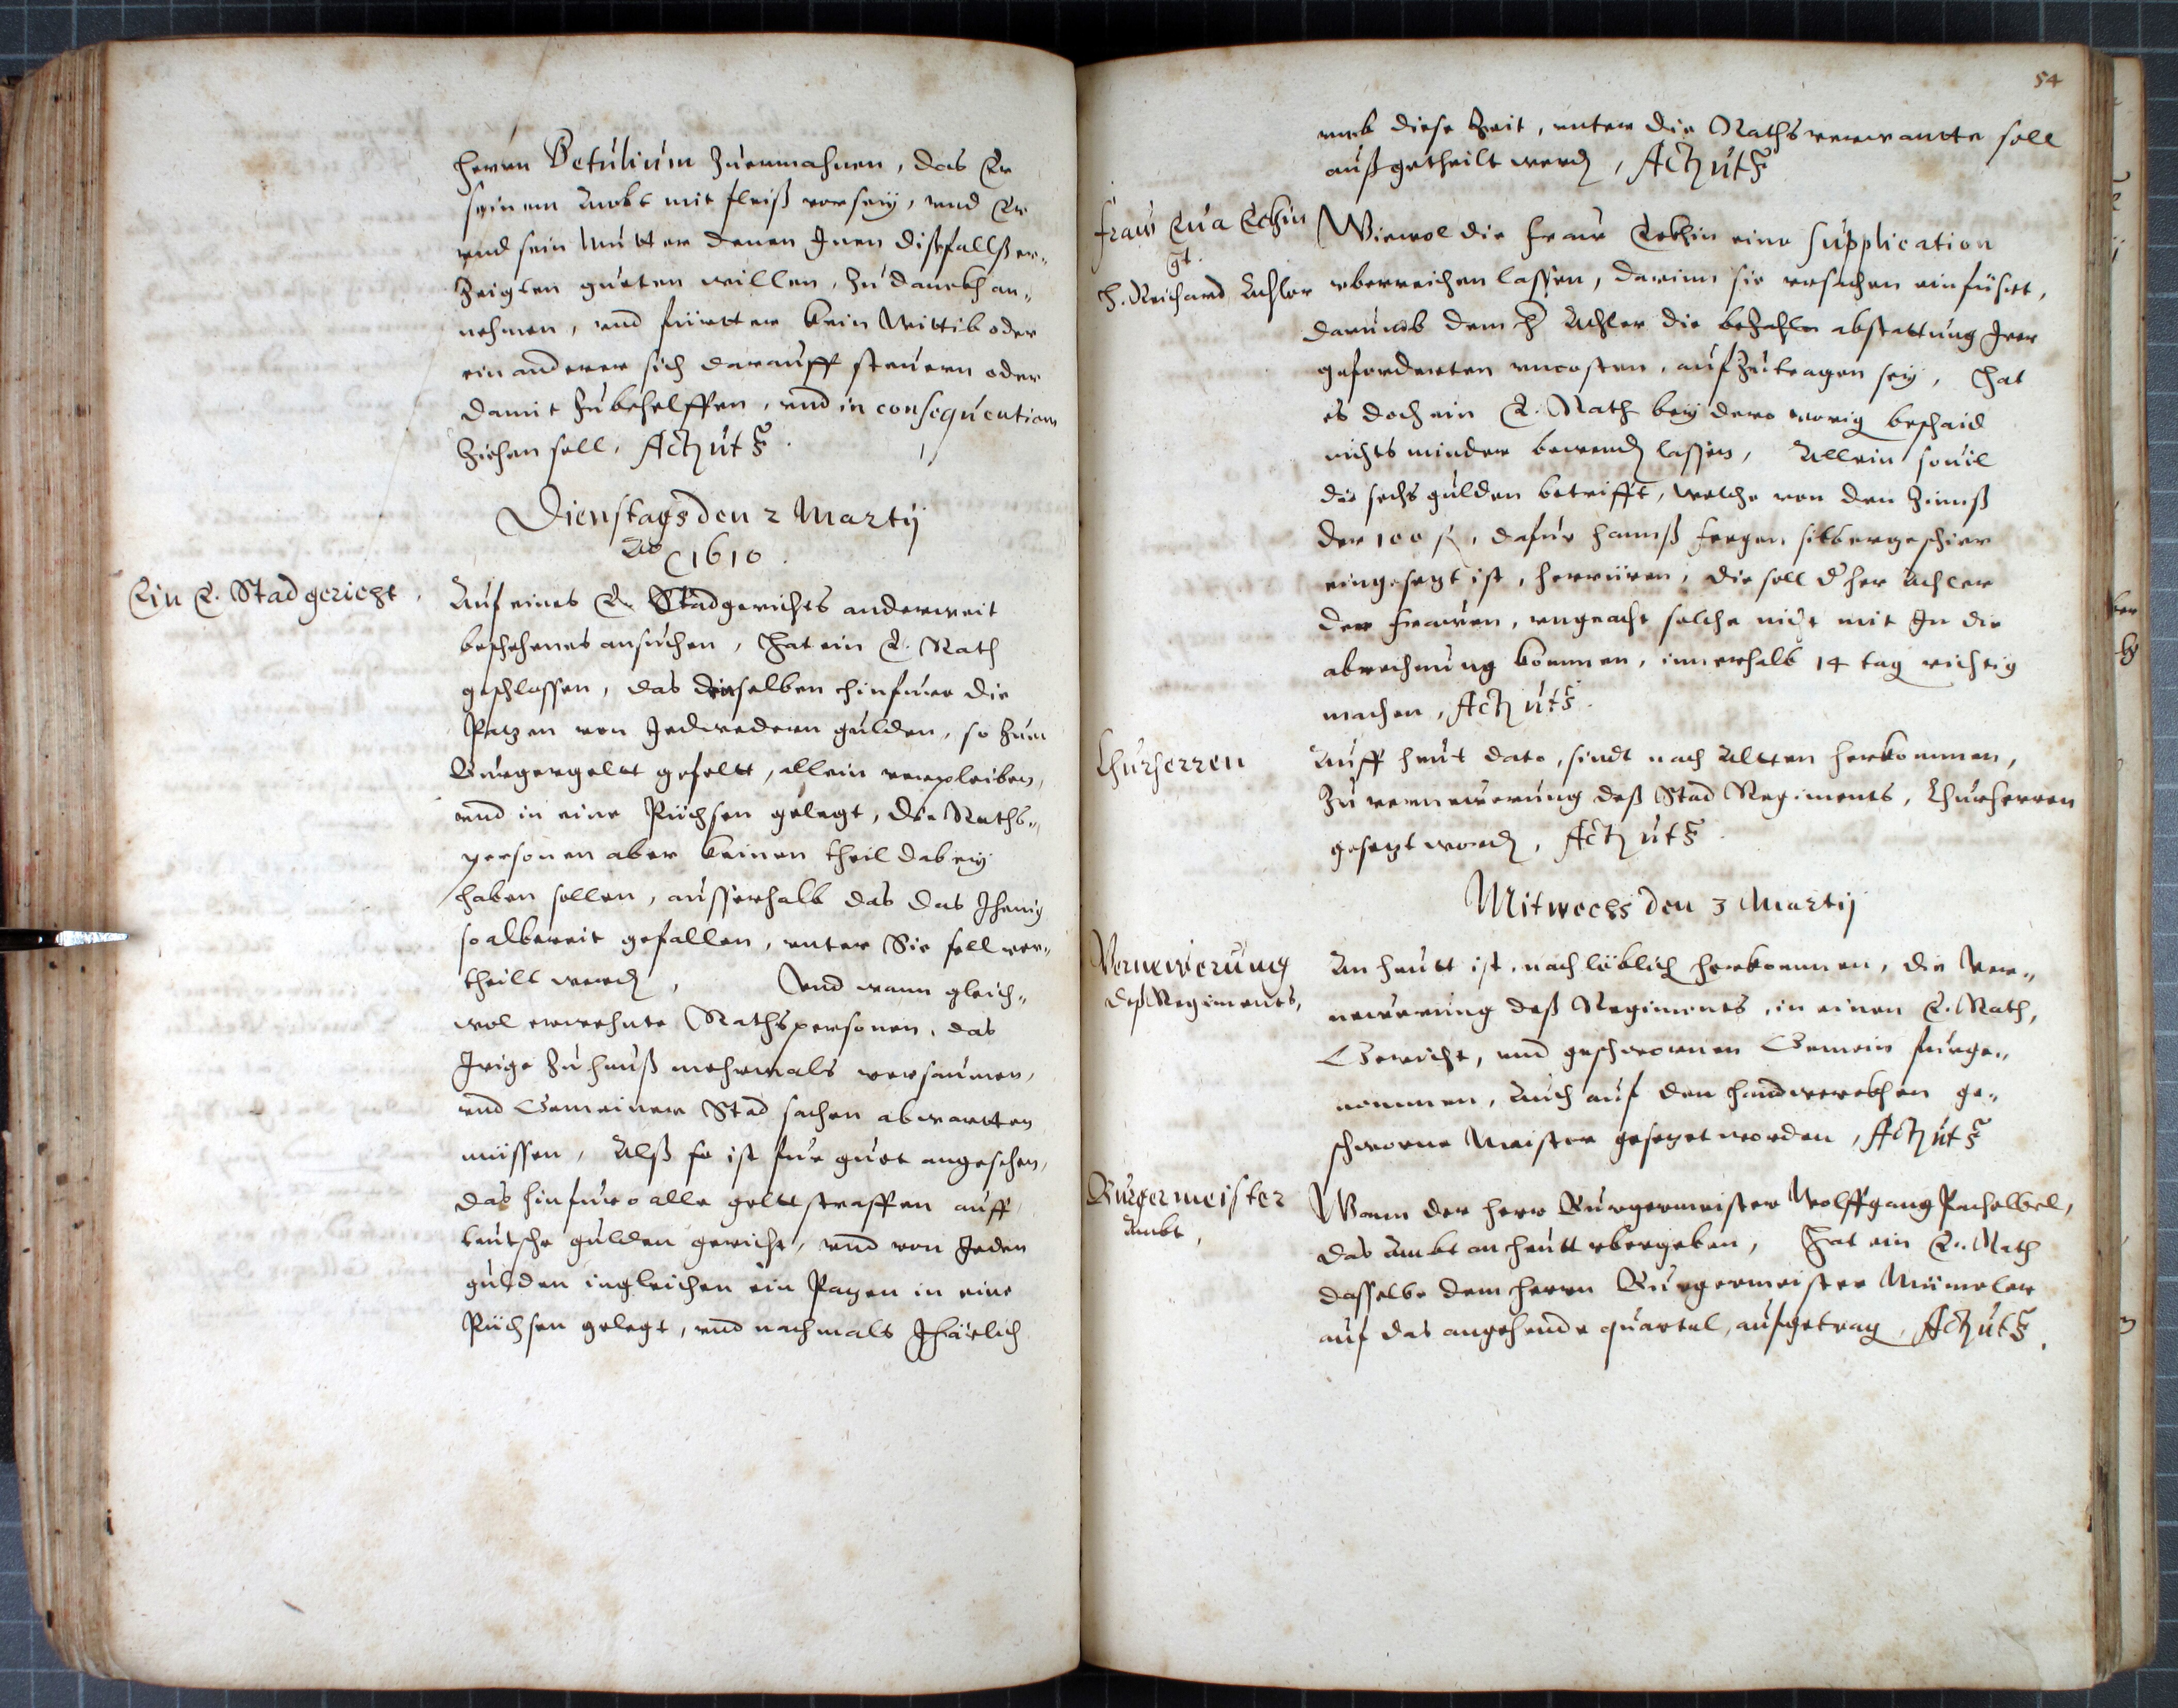 herrn Betulium zuermahnen, das Er
seinem Ambt mit fleiß vorsey, und Er
und sein Mutter denen Jnen dißfallß er„
zeigten guten willen, zu danckh an„
nehmen, und fürtter kein Wittib oder
ein anderer sich darauff steuern oder
damit zubehelffen, und in consequentiam
ziehen soll, Act ut s.
Dienstags den 2 Martij
Ao 1610.
Ein E. Stadgericht,
Auf eines E. Stadgerichts anderweit
beschehenes ansuchen, Hat ein E. Rath
geschlossen, das denselben hinfuro die
Patzen von Jedwedern gulden, so zum
Burgergelt gefelt, allein verpleiben,
und in eine Püchsen gelegt, die Raths„
personen aber keinen theil dabey
haben sollen, ausserhalb das das Jhenig
so albereit gefallen, unter Sie soll ver„
theilt werden, Und wann gleich„
wol erwehnte Rathspersonen, das
Jrige zu hauß mehrmals versaumen,
und Gemeiner Stad sachen abwartten
müssen, Alß so ist fur guet angesehen,
das hinfuro alle geltstraffen auff
teutsche gulden gericht, und von Jeden
gulden ingleichen ein Patzen in eine
Püchsen gelegt, und nachmals Jhärlich
54
umb diese Zeit, unter die Rathsverwantte soll
außgetheilt werden, Act ut s.
Fraw Eva Eckhin
gt.
H. Reichard Achler
Wiewol die Fraw Eckhin eine Supplication
uberreichen lassen, darinn sie ursachen einfüret,
darumb dem H. Achler die abstattung Jrer
geforderten uncosten, aufzutragen sey, Hat
es doch ein E. Rath bey dero vorig beschaid
nichts minder bewenden lassen, Allein sovil
die sechs gulden betrifft, welche von den Zinnß
der 100 fl, dafür Hannß Fergen silbergeschirr
eingesetzt ist, herrüren, die soll der Herr Achler
der Frawen, ungeacht solche nicht mit Jn die
abrechnung kommen, innerhalb 14 tag richtig
machen, Act ut s.
Churherren
Auff heut dato, sindt nach Altten herkommen,
zu vernewerung deß Stad Regiments, Churherren
gesetzt worden, Act ut s.
Mitwochs den 3 Martij
Vernewerung
deß Regiments,
An heutt ist, nach löblich herkommen, die Ver„
newerung deß Regiments, in einen E. Rath,
Gericht, und geschwornen Gemein furge„
nommen, Auch auf den handwerckhen ge„
schworne Meister gesetzet worden, Act ut s.
Burgermeister
Ambt,
Wann der Herr Burgermeister Wolffgang Pachelbel,
das Ambt an heutt ubergeben, Hat ein E. Rath
dasselbe dem Herrn Burgermeister
auf das angehende quartal, aufgetragen, Act ut s.